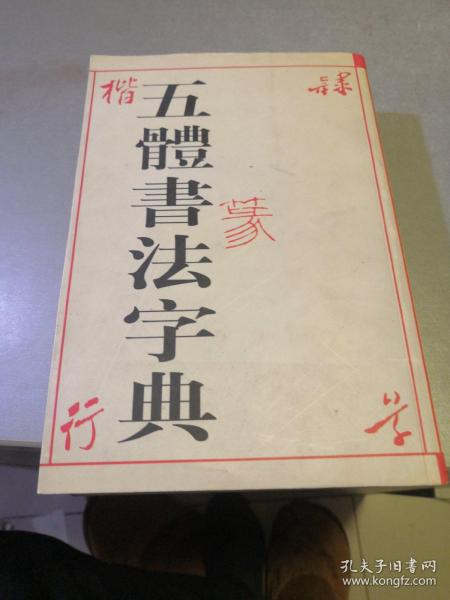 五體書法字典
楷
隸
篆
行
草
孔夫子旧书网
www.kongfz.com